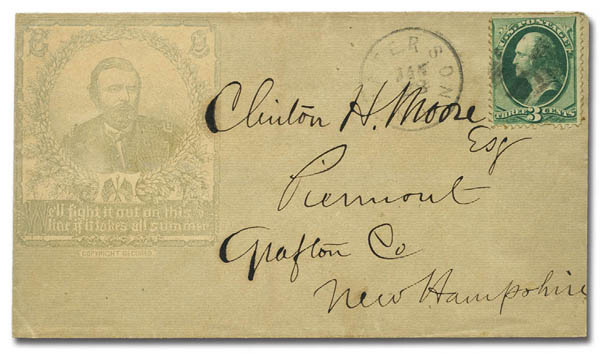 U.S. POSTAGE
THREE 3 CENTS
TERSON
JAN
Clinton H. Moore
Esq
Piermont
Grafton Co
New Hampshire
We'll fight it out on this
line if it takes all summer
COPYRIGHT SECURED